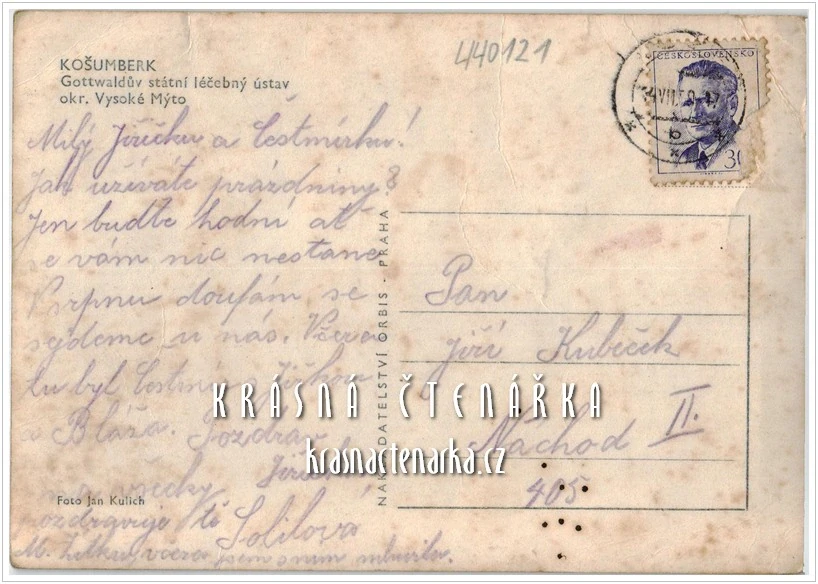 440121
KOŠUMBERK
Gottwaldův státní léčebný ústav
okr. Vysoké Mýto
ČESKOSLOVENSKO
VII.58.-17
b
30
Milý Jiříčku a Čestmírku!
Jak užíváte prázdniny?
Jen buďte hodní ať
se vám nic nestane
V srpnu doufám, se
sejdeme u nás. Včera
tu byl Čestmír s Jiřkou
a Bláža. Pozdrav
všecky
pozdravuje tě Solilová
M. včera jsem s ním mluvila.
NAKLADATELSTVÍ ORBIS - PRAHA
Pan
Jiří Kubeček
Náchod II.
405
Foto Jan Kulich
KRÁSNÁ ČTENÁŘKA
krasnactenarka.cz